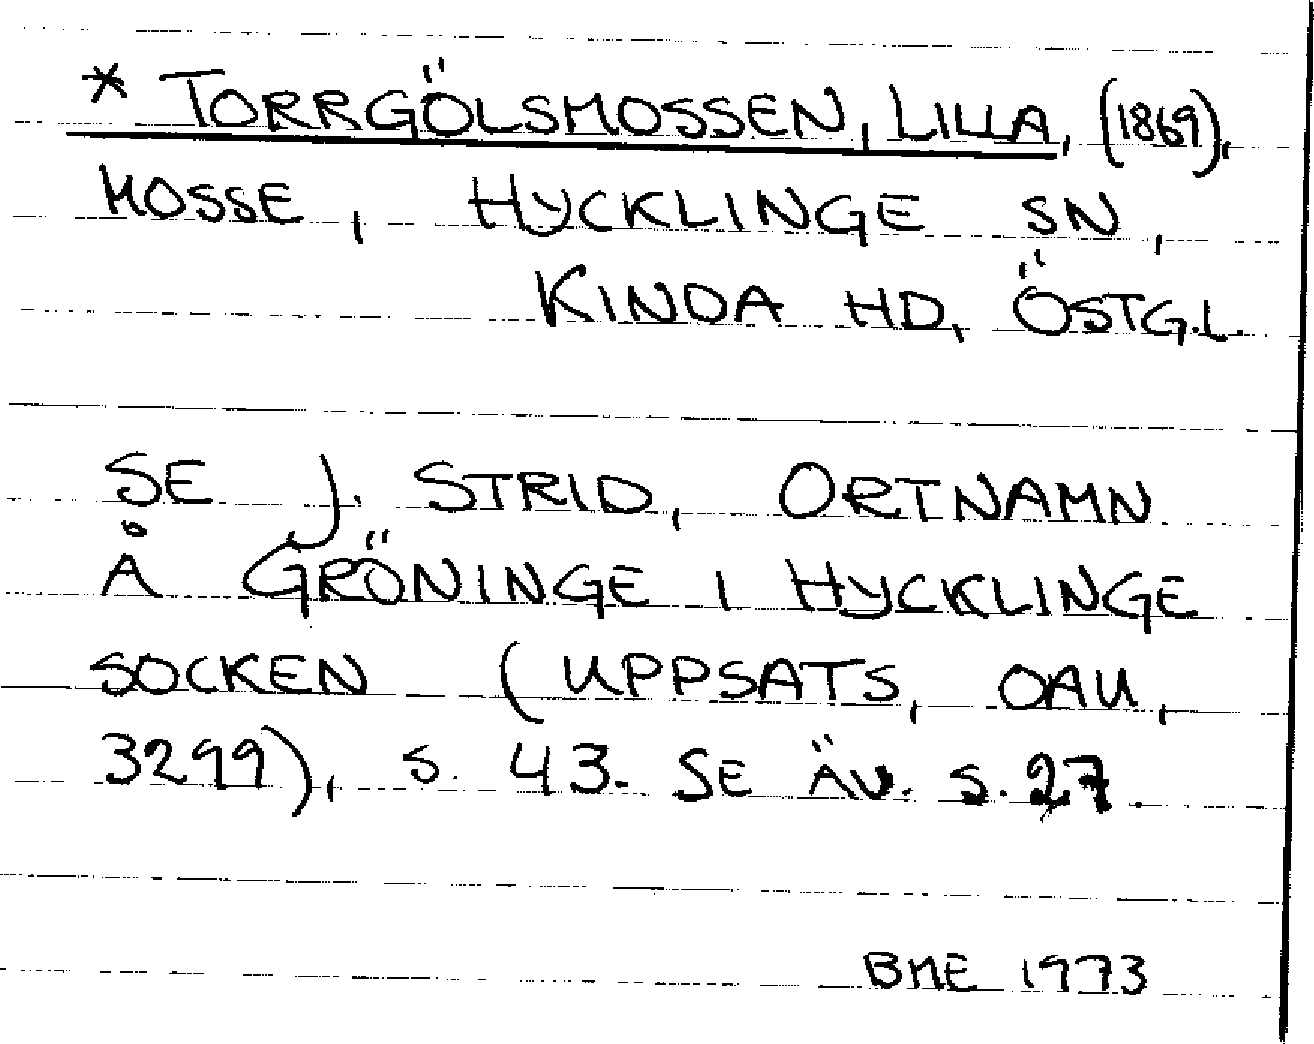 * TORRGÖLSMOSSEN, LILLA, (1869),
MOSSE, HYCKLINGE SN,
KINDA HD, ÖSTG.L.
SE J. STRID, ORTNAMN
Å GRÖNINGE I HYCKLINGE
SOCKEN (UPPSATS, OAU,
3299), S. 43. SE ÄV. S. 27.
BME 1973